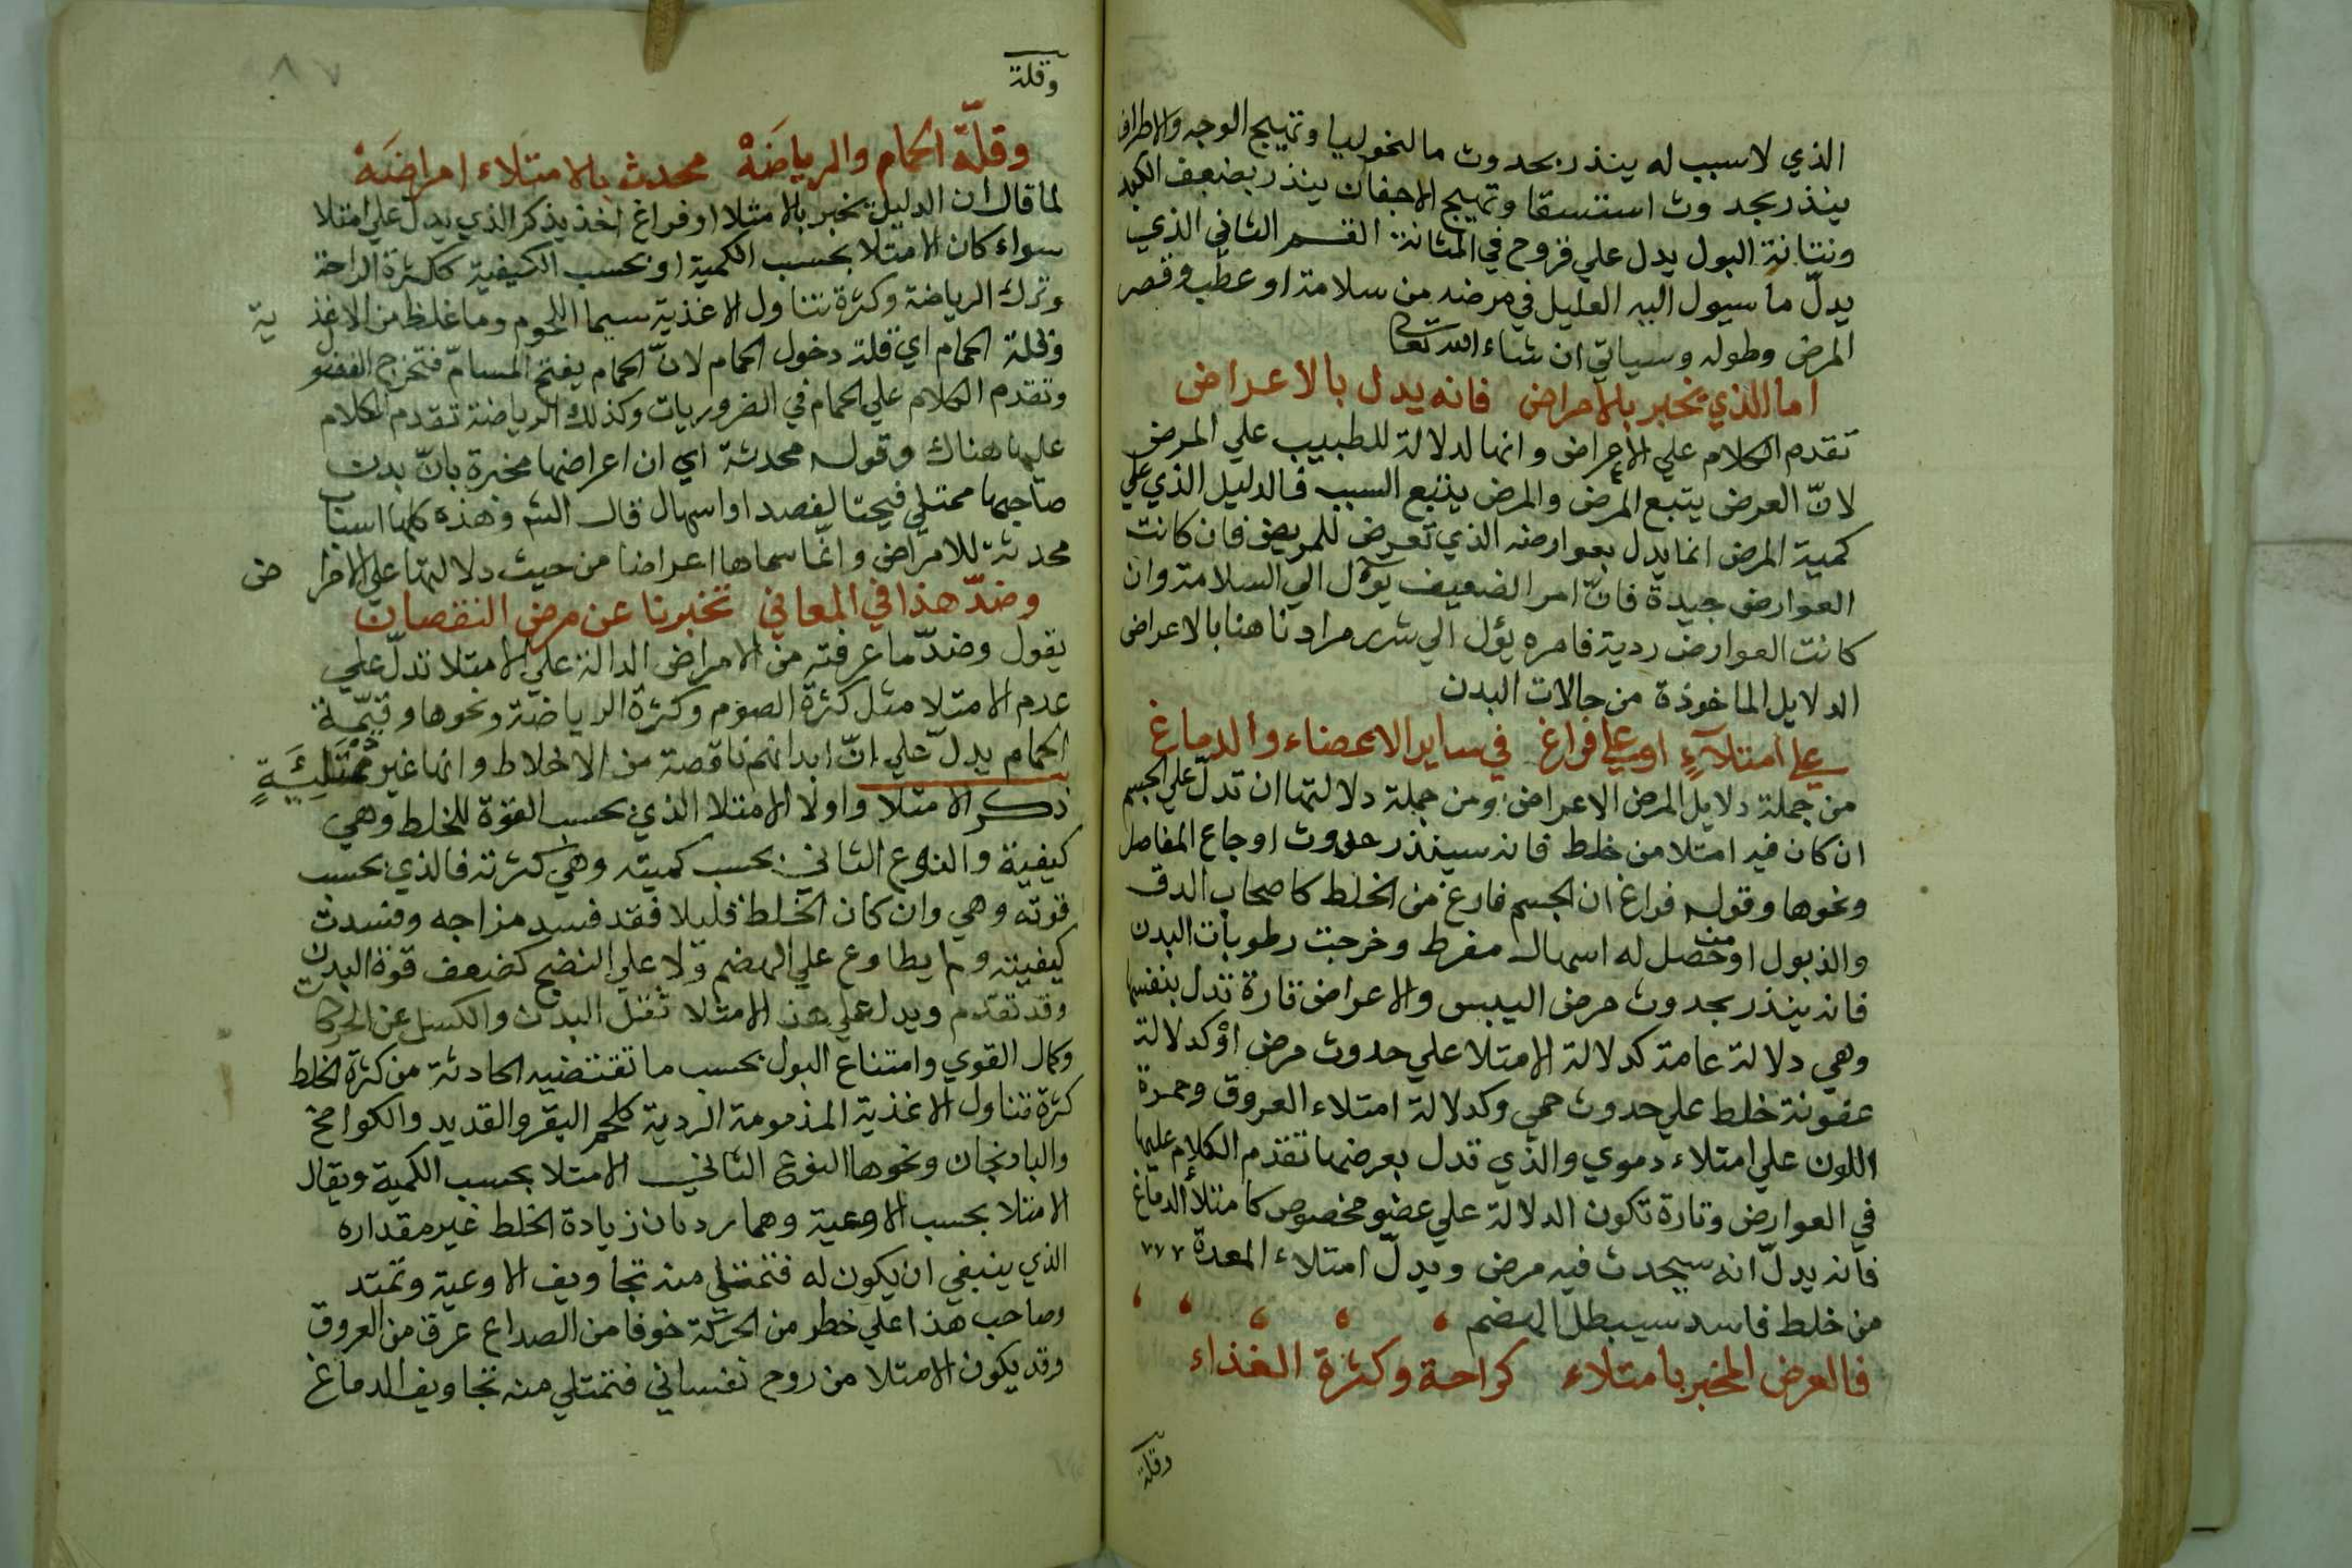 الذي لا سبب له ينذر بحدوث مالنخوليا وتهيج الوجه والاطراف
ينذر بحدوث استسقا وتهيج الاجفان ينذر بضعف الكبد
ونتانة البول يدل علي قروح في المثانة القسم الثاني الذي
يدلّ ما سيول اليه العليل في مرضه من سلامة او عطب وقصر
المرض وطوله وسياتي ان شاء الله تعالى
اما الذي يخبر بالامراض فانه يدل بالاعراض
تقدم الكلام علي الاعراض وانها لدلالة للطبيب علي المرض
لانّ العرض يتبع المرض والمرض يتبع السبب فالدليل الذي علي
كمية المرض انما يدل بعوارضه الذي تعرض للمريض فان كانت
العوارض جيدة فانّ امر الضعيف يؤل الي السلامة وان
كانت العوارض ردية فامره يؤل الي شر مرادنا هنا بالاعراض
الدلايل الماخوذة من حالات البدن
علي امتلاء او علي فراغ في ساير الاعضاء والدماغ
من جملة دلايل المرض الاعراض ومن جملة دلالتها ان تدلّ علي الجسم
ان كان فيه امتلا من خلط فانه سينذر حدوث اوجاع المفاصل
ونحوها وقوله فراغ ان الجسم فارغ من الخلط كاصحاب الدق
والذبول او من حصل له اسهال مفرط وخرجت رطوبات البدن
فانه ينذر بحدوث مرض اليبس والاعراض تارة تدل بنفسها
وهي دلالة عامة كدلالة الامتلا علي حدوث مرض او كدلالة
عفونة خلط علي حدوث حمي وكدلالة امتلاء العروق وحمرة
اللون علي امتلاء دموي والذي تدل بعرضها تقدم الكلام عليها
في العوارض وتارة تكون الدلالة علي عضو مخصوص كامتلاء الدماغ
فانه يدلّ انه سيحدث فيه مرض ويدلّ امتلاء المعدة
من خلط فاسد سيبطل الهضم
فالعرض المخبر بامتلاء كراحة وكثرة الغذاء
وقلة
وقلة
وقلّة الحمام والرياضة محدث بالامتلاء امراضه
لما قال ان الدليل يخبر بالامتلا او فراغ اخذ يذكر الذي يدل علي امتلا
سواء كان الامتلا بحسب الكمية او بحسب الكيفية ككثرة الراحة
وترك الرياضة وكثرة تناول الاغذية سيما اللحوم وما غلظ من الاغذية
وقلة الحمام اي قلة دخول الحمام لانّ الحمام يفتح المسامّ فتخرج الفضول
وتقدم الكلام علي الحمام في الضروريات وكذلك الرياضة تقدم الكلام
عليها هناك وقوله محدثة اي ان اعراضها مخبرة بانّ بدن
صاحبها ممتلي فيحتا لفصد او اسهال قال الش وهذه كلها اسباب
محدثة للامراض وانما سماها اعراضا من حيث دلالتها علي الامراض
وضدّ هذا في المعاني تخبرنا عن مرض النقصان
يقول وضدّ ما عرفته من الامراض الدالة علي الامتلا تدلّ علي
عدم الامتلا مثل كثرة الصوم وكثرة الرياضة ونحوها وقيّمة
الحمام يدلّ علي انّ ابدانهم ناقصة من الاخلاط وانها غير ممتلئة
ذكر الامتلا واولا الامتلا الذي بحسب القوة للخلط وهي
كيفية والنوع الثاني بحسب كميته وهي كثرته فالذي بحسب
قوته وهي وان كان الخلط قليلا فقد فسد مزاجه وفسدت
كيفيته ولم يطاوع علي الهضم ولا علي النضج كضعف قوة البدن
وقد تقدم ويدل علي هذ الامتلا ثقل البدن والكسل عن الحركا
وكمال القوي وامتناع البول بحسب ما تقتضيه الحادثة من كثرة الخلط
كثرة تناول الاغذية المذمومة الردية كلحم البقر والقديد والكوامخ
والبادنجان ونحوها النوع الثاني الامتلا بحسب الكمية ويقال
الامتلا بحسب الاوعية وهما يردان زيادة الخلط غير مقداره
الذي ينبغي ان يكون له فتمتلي منه تجاويف الاوعية وتمتد
وصاحب هذا علي خطر من الحركة خوفا من الصداع عرق من العروق
وقد يكون الامتلا من روح نفساني فتمتلي منه تجاويف الدماغ